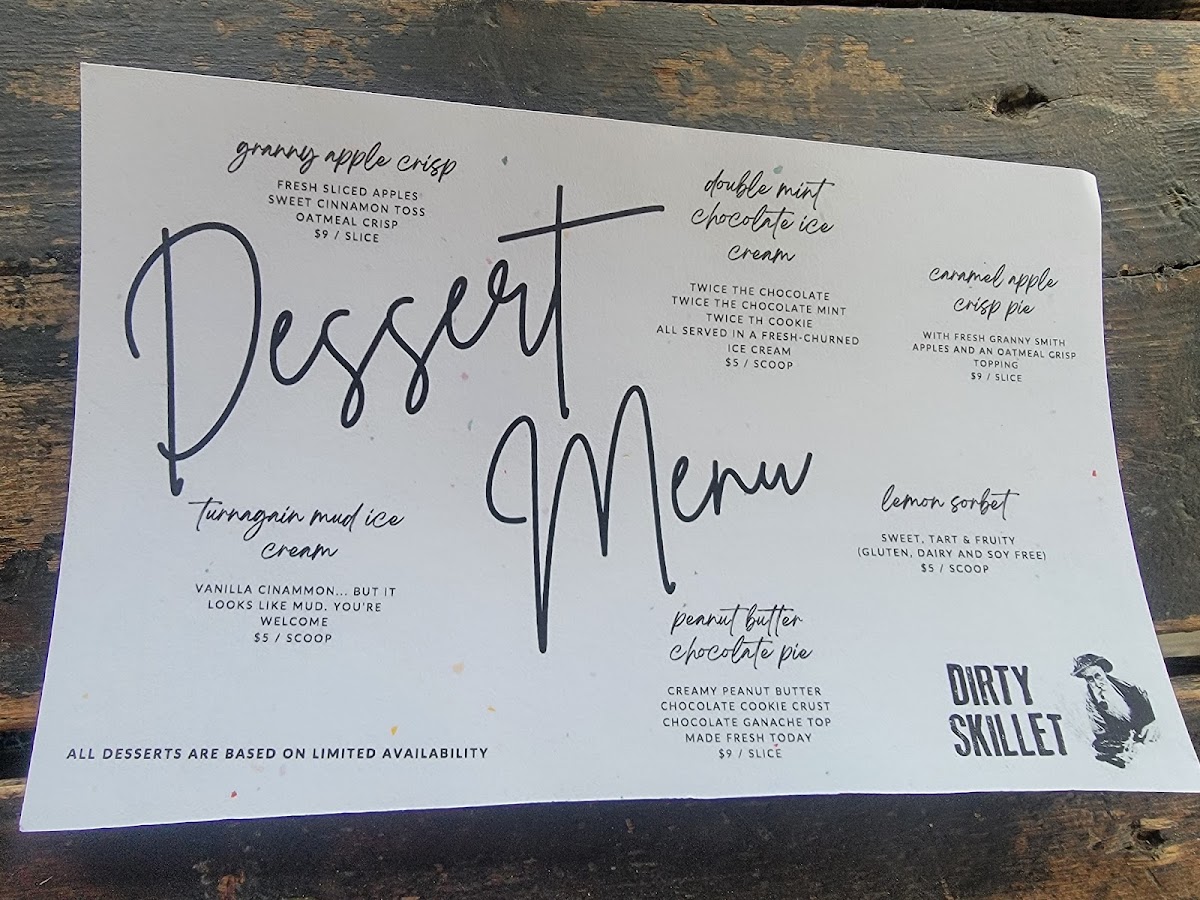 granny apple crisp
FRESH SLICED APPLES
SWEET CINNAMON TOSS
OATMEAL CRISP
$9 / SLICE
double mint
chocolate ice
cream
TWICE THE CHOCOLATE
TWICE THE CHOCOLATE MINT
TWICE TH COOKIE
ALL SERVED IN A FRESH-CHURNED
ICE CREAM
$5 / SCOOP
caramel apple
crisp pie
WITH FRESH GRANNY SMITH
APPLES AND AN OATMEAL CRISP
TOPPING
$9 / SLICE
Dessert
Menu
turnagain mud ice
cream
VANILLA CINAMMON... BUT IT
LOOKS LIKE MUD. YOU'RE
WELCOME
$5 / SCOOP
lemon sorbet
SWEET, TART & FRUITY
(GLUTEN, DAIRY AND SOY FREE)
$5 / SCOOP
peanut butter
chocolate pie
CREAMY PEANUT BUTTER
CHOCOLATE COOKIE CRUST
CHOCOLATE GANACHE TOP
MADE FRESH TODAY
$9 / SLICE
DIRTY
SKILLET
ALL DESSERTS ARE BASED ON LIMITED AVAILABILITY